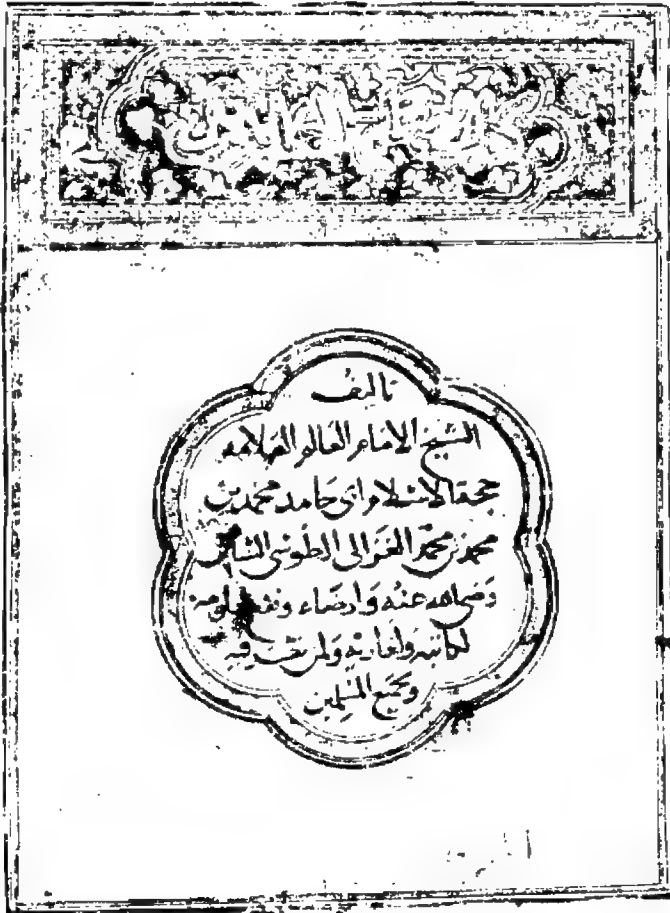 تاليف
الشيخ الامام العالم العلامه
حجة الاسلام ابى حامد محمد بن
محمد بن محمد الغزالى الطوسى الشافعى
رضى الله عنه وارضاه ونفع بعلومه
لكاتبه ولقاريه ولمن نظر فيه
وجميع المسلمين